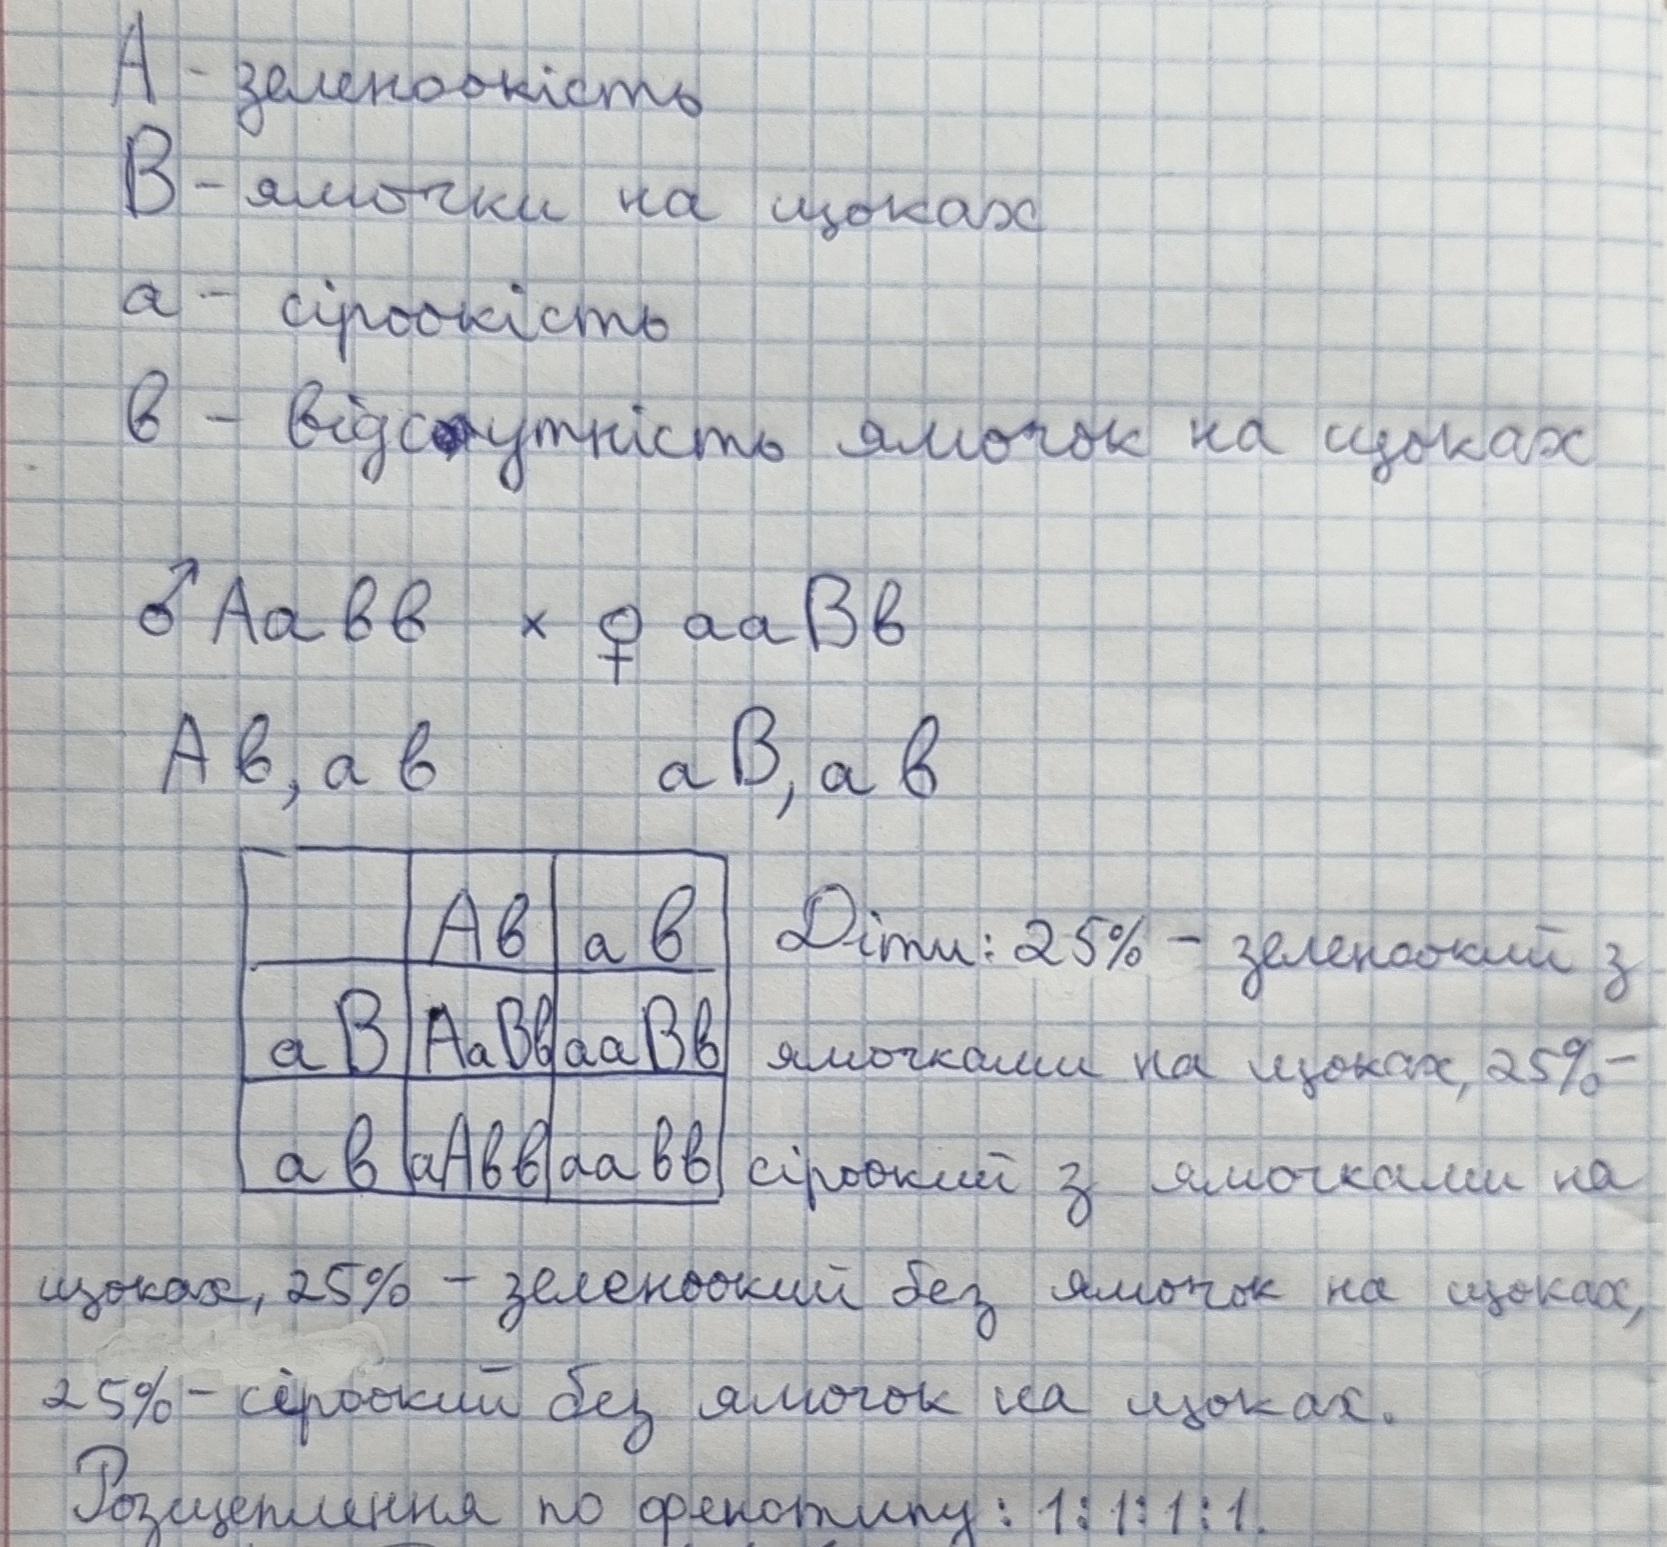 А - зеленоокість
В - ямочки на щоках
а - сіроокість
в - відсутність ямочок на щоках
♂ Аавв × ♀ ааВв
Ав, ав аВ, ав
Ав ав
аВ АаВв ааВв
ав аАвв аавв
Діти: 25% - зеленоокий з
ямочками на щоках, 25% -
сіроокий з ямочками на
щоках, 25% - зеленоокий без ямочок на щоках,
25% - сіроокий без ямочок на щоках.
Розщеплення по фенотипу: 1:1:1:1.